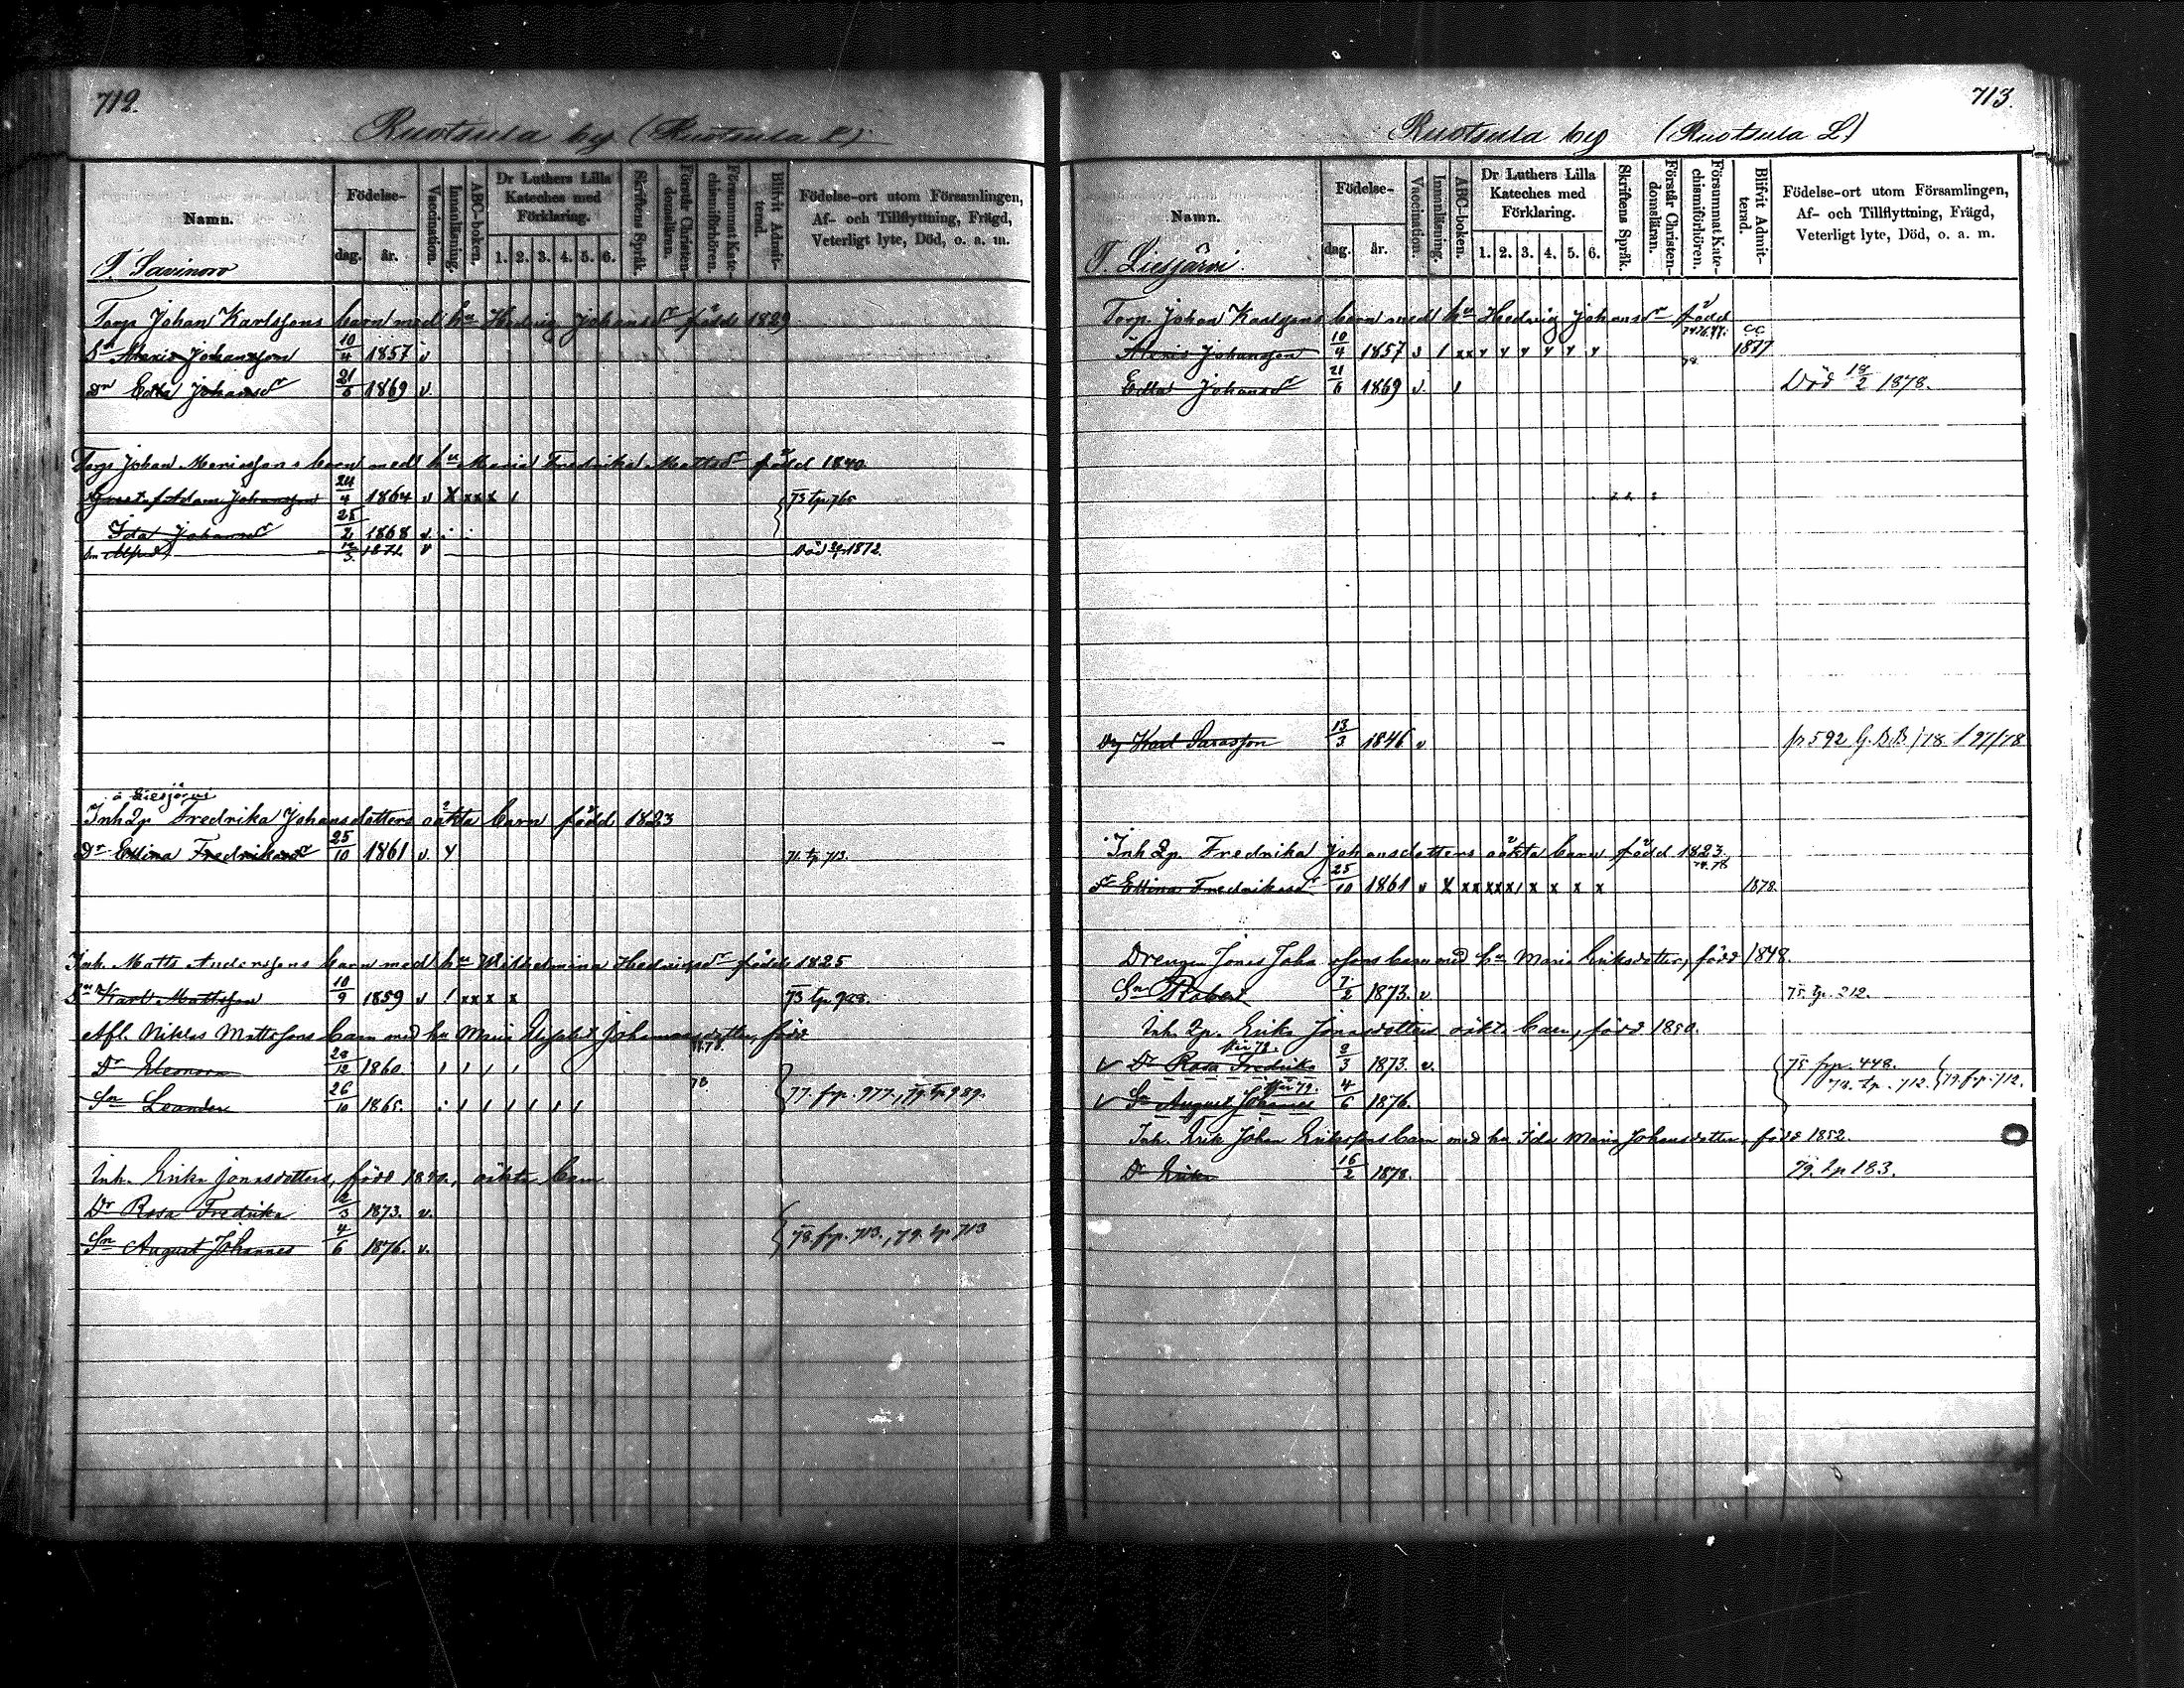 712.
Ruotsula by (Ruotsula L)
Namn.
Födelse-
dag.
år.
Vaccination.
Innanläsning.
ABC-boken.
Dr Luthers Lilla Kateches med Förklaring.
1. 2. 3. 4. 5. 6.
Skriftens Språk.
Förstår Christendomsläran.
Försummat Katechismiförhören.
Blifvit Admitterad.
Födelse-ort utom Församlingen, Af- och Tillflyttning, Frägd, Veterligt lyte, Död, o. a. m.
T. Savinoro
Torp Johan Karlssons barn med hu Hedvig Johansdr född 1829
Sn Alexis Johansson 10/4 1857 v
Dr Edla Johansdr 21/6 1869 v.
Torp Johan Mericssons barn med hu Maria Fredrika Mattsdr född 1840
Gustaf Adam Johansson 24/4 1864 v X x x x 1 73 tp. 765
Ida Johansdr 25/2 1868 v.
Sn Alfred 1871 v Död 1872.
å Liesjärvi
Inh Qp Fredrika Johansdotters oäkta barn född 1823
Dr Ellina Fredrikasdr 25/10 1861 v. Y 71 tp. 713.
Inh. Matts Anderssons barn med hu Wilhelmina Hedvigsdr född 1825
Sn Karl Mattsson 10/9 1859 v 1 x x x x 73 tp. 928.
Afl. Niklas Mattssons barn med hu Maria Elisabet Johannesdotter, född
Dr Eleonora 28/12 1860
Sn Leander 26/10 1865. 77. frp. 977., 79. tp. 989.
Inh. Erika Jonasdotters, född 1850, oäkta barn
Dr Rosa Fredrika 8/3 1873. v.
Sn August Johannes 4/6 1876. v. 78. frp. 713., 79. tp. 713
713.
Ruotsula by (Ruotsula L)
Namn.
Födelse-
dag.
år.
Vaccination.
Innanläsning.
ABC-boken.
Dr Luthers Lilla Kateches med Förklaring.
1. 2. 3. 4. 5. 6.
Skriftens Språk.
Förstår Christendomsläran.
Försummat Katechismiförhören.
Blifvit Admitterad.
Födelse-ort utom Församlingen, Af- och Tillflyttning, Frägd, Veterligt lyte, Död, o. a. m.
T. Liesjärvi.
Torp. Johan Karlssons barn med hu Hedvig Johansdr född
Alexis Johansson 10/4 1857 v 1 x x Y Y Y Y Y Y 1877
Edla Johansdr 21/6 1869 v. 1 Död 18/2 1878.
Dg Karl Sarasson 13/3 1846 v fr 592 G.B.B.
Inh Qp. Fredrika Johansdotters oäkta barn född 1823.
Dr Ellina Fredrikasdr 25/10 1861 v X x x x x x 1 x x x x 1878.
Drengen Jonas Johanssons barn med hu Maria Eriksdotter, född 1848.
Sn Robert 7/2 1873. v. 75. tp. 212.
Inh. Qp. Erika Jonasdotters oäkt. barn, född 1850.
Dr Rosa Fredrika 8/3 1873. v. 75 frp. 448.
78. tp. 712. 79. frp. 712.
Sn August Johannes 4/6 1876.
Inh. Erik Johan Erikssons barn med hu Ida Maria Johansdotter, född 1852.
Dr Erika 16/2 1878. 79. tp. 183.